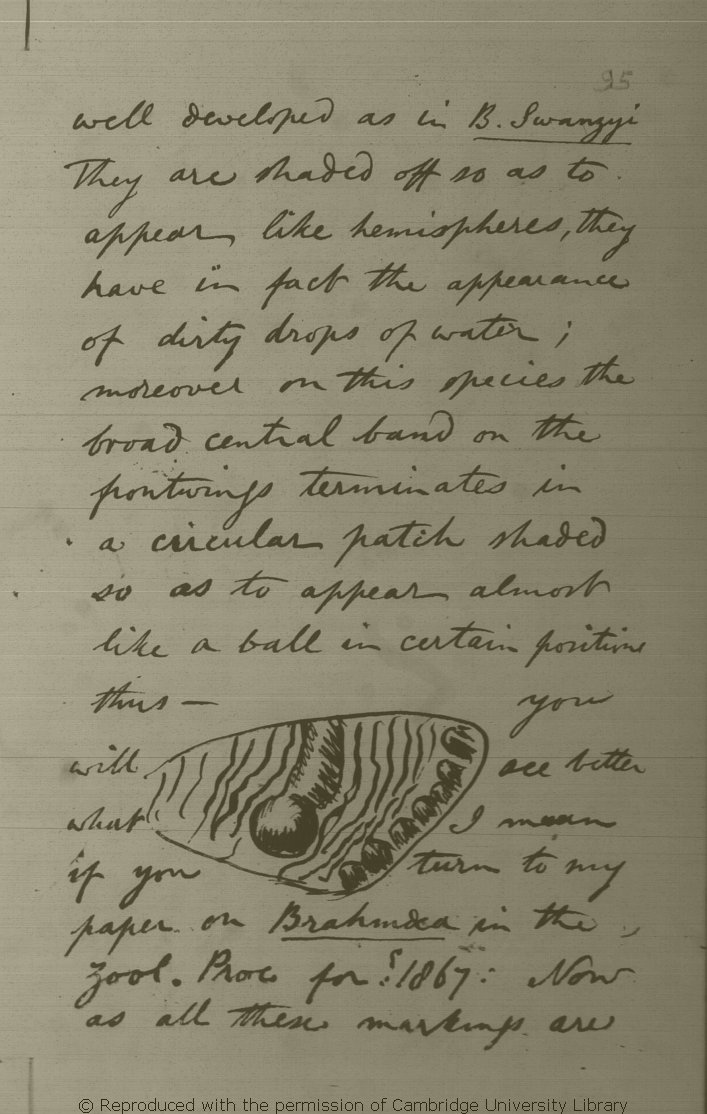 95
well developed as in B. Swanzyi
They are shaded off so as to
appear like hemispheres, they
have in fact the appearance
of dirty drops of water ;
moreover on this species the
broad central band on the
frontwings terminates in
a circular patch shaded
so as to appear almost
like a ball in certain positions
thus — you
will see better
what I mean
if you turn to my
paper on Brahmæa in the
Zool. Proc for ? 1867. Now
as all these markings are
© Reproduced with the permission of Cambridge University Library